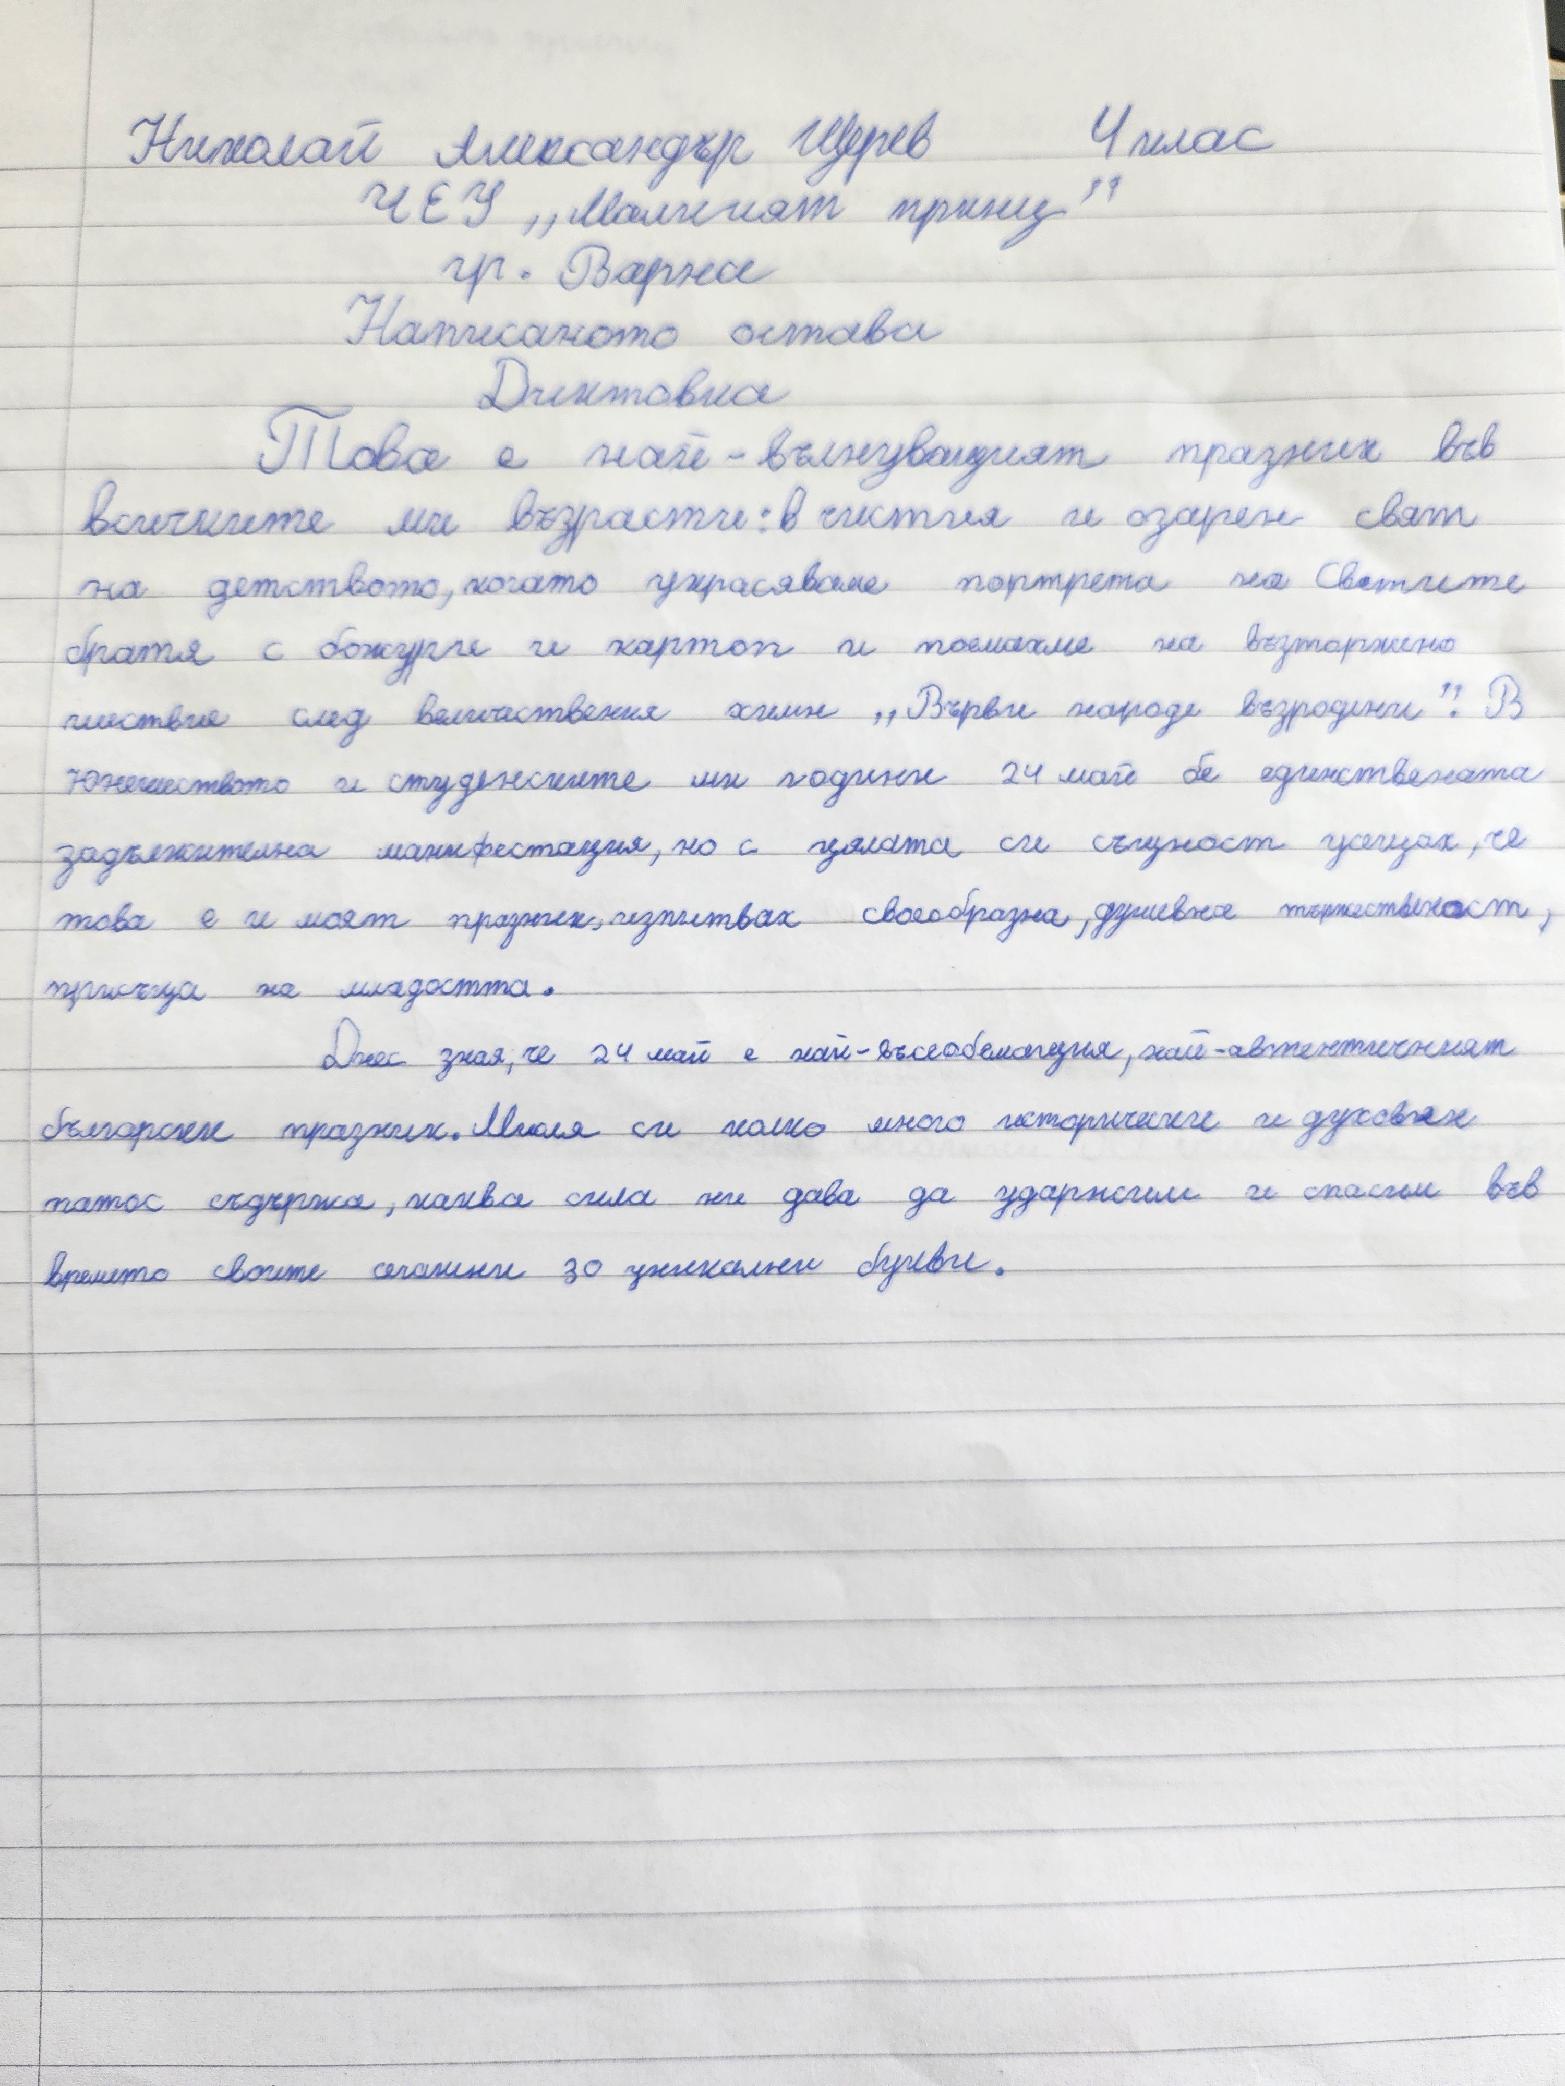 Николай Александър Щерев 4 клас
ЧЕУ „Малкият принц"
гр. Варна
Написаното остава
Диктовка
Това е най-вълнуващият празник във
всичките ми възрасти: в чистия и озарен свят
на детството, когато украсяваме портрета на Светите
братя с божури и картон и поемахме на възторжено
шествие след величествения химн „Върви народе възродени". В
юношеството и студенските ми години 24 май бе единствената
задължителна манифестация, но с цялата си същност усещах, че
това е и моят празник, изпитвах своеобразна, душевна тържественост,
присъща на младостта.
Днес зная, че 24 май е най-всеобемащия, най-автентичният
български празник. Мисля си колко много исторически и духовен
патос съдържа, каква сила ни дава да удържим и спасим във
времето своите 30 уникални букви.